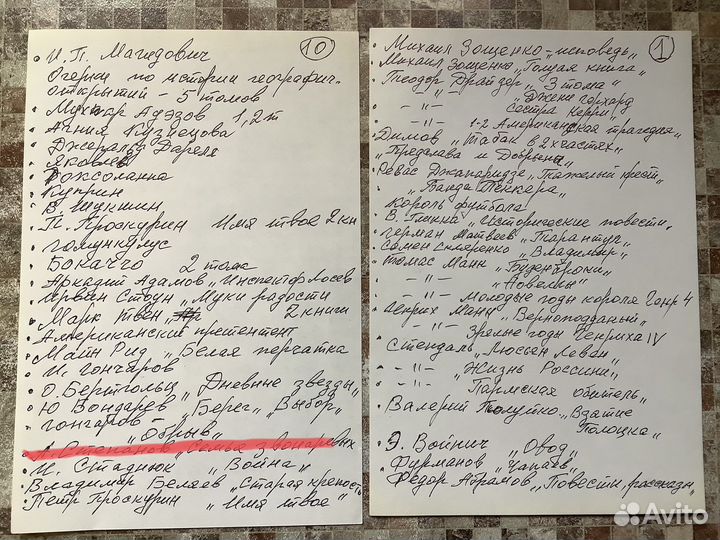 10
И. П. Магидович
Очерки по истории географич.
открытий - 5 томов
Мухтар Ауэзов 1,2т
Агния Кузнецова
Джеральд Даррел
Яковлев
Роксоланна
Куприн
В. Шукшин
П. Проскурин Имя твое 2 кн
Гомункулус
Бокаччо 2 тома
Аркадий Адамов „Инспектор Лосев
Ирвин Стоун „Муки радости
2 книги
Марк Твен
Американский претендент
Майн Рид „Белая перчатка
И. Гончаров
О. Берггольц „Дневные звезды„
Ю Бондарев „Берег„ „Выбор„
Гончаров -
„Обрыв„
А. Степанов „Семья звонаревых
И. Стаднюк „Война„
Владимир Беляев „Старая крепость
Петр Проскурин „Имя твое„
1
Михаил Зощенко - исповедь„
Михаил Зощенко „Голубая книга„
Теодор Драйзер „3 тома„
-"- „Дженни Герхард
сестра Керри„
-"- 1-2 Американская трагедия„
Димов „Табак в 2 частях„
„Предслава и Добрыня„
Ревас Джапаридзе „Тяжелый крест„
„Банда Теккера„
Король футбола
В. Тишка „Исторические повести„
Герман Матвеев „Тарантул„
Семен Скляренко „Владимир„
Томас Манн „Буденброки„
-"- „Новеллы„
-"- Молодые годы короля Генр 4
Генрих Манн „Верноподданый„
-"- Зрелые годы Генриха IV
Стендаль „Люсьен Левен„
-"- „Жизнь Россини„
-"- „Пармская обитель„
Валерий Полуйко „Взятие
Полоцка„
Э. Войнич „Овод„
Фурманов „Чапаев„
Федор Абрамов „Повести, рассказы„
Avito